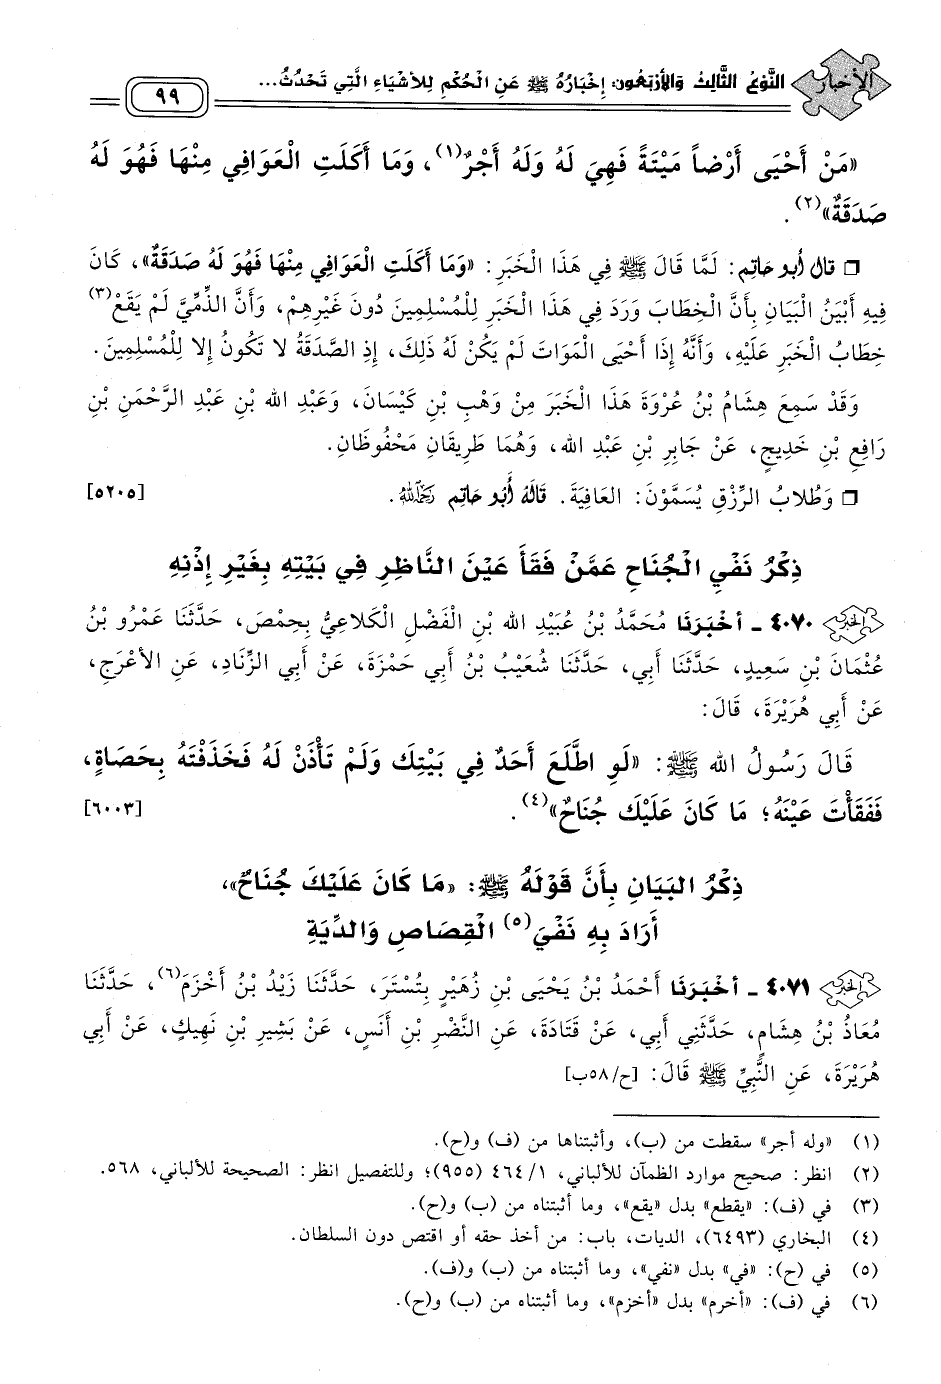 الأخبار
النَّوْعُ الثَّالِثُ وَالأَرْبَعُون: إِخْبَارُهُ ﷺ عَنِ الْحُكْمِ لِلأَشْيَاءِ الَّتِي تَحْدُثُ...
٩٩
«مَنْ أَحْيَى أَرْضاً مَيْتَةً فَهِيَ لَهُ وَلَهُ أَجْرٌ(١)، وَمَا أَكَلَتِ الْعَوَافِي مِنْهَا فَهُوَ لَهُ
صَدَقَةٌ»(٢).
❑ قال أبو حاتِم: لَمَّا قَالَ ﷺ فِي هَذَا الْخَبَرِ: «وَمَا أَكَلَتِ الْعَوَافِي مِنْهَا فَهُوَ لَهُ صَدَقَةٌ»، كَانَ
فِيهِ أَبْيَنُ الْبَيَانِ بِأَنَّ الْخِطَابَ وَرَدَ فِي هَذَا الْخَبَرِ لِلْمُسْلِمِينَ دُونَ غَيْرِهِمْ، وَأَنَّ الذِّمِّيَّ لَمْ يَقَعْ(٣)
خِطَابُ الْخَبَرِ عَلَيْهِ، وَأَنَّهُ إِذَا أَحْيَى الْمَوَاتَ لَمْ يَكُنْ لَهُ ذَلِكَ، إِذِ الصَّدَقَةُ لا تَكُونُ إِلا لِلْمُسْلِمِينَ.
وَقَدْ سَمِعَ هِشَامُ بْنُ عُرْوَةَ هَذَا الْخَبَرَ مِنْ وَهْبِ بْنِ كَيْسَانَ، وَعَبْدِ الله بْنِ عَبْدِ الرَّحْمَنِ بْنِ
رَافِعِ بْنِ خَدِيجٍ، عَنْ جَابِرِ بْنِ عَبْدِ الله، وَهُمَا طَرِيقَانِ مَحْفُوظَانِ.
❑ وَطُلابُ الرِّزْقِ يُسَمَّوْنَ: العَافِيَةَ. قَالَهُ أَبُو حَاتِم رَحِمَهُ اللهُ. [٥٢٠٥]
ذِكْرُ نَفْيِ الْجُنَاحِ عَمَّنْ فَقَأَ عَيْنَ النَّاظِرِ فِي بَيْتِهِ بِغَيْرِ إِذْنِهِ
٤٠٧٠ ـ أخْبَرَنَا مُحَمَّدُ بْنُ عُبَيْدِ الله بْنِ الْفَضْلِ الْكَلاعِيُّ بِحِمْصَ، حَدَّثَنَا عَمْرُو بْنُ
عُثْمَانَ بْنِ سَعِيدٍ، حَدَّثَنَا أَبِي، حَدَّثَنَا شُعَيْبُ بْنُ أَبِي حَمْزَةَ، عَنْ أَبِي الزِّنَادِ، عَنِ الأَعْرَجِ،
عَنْ أَبِي هُرَيْرَةَ، قَالَ:
قَالَ رَسُولُ الله ﷺ: «لَوِ اطَّلَعَ أَحَدٌ فِي بَيْتِكَ وَلَمْ تَأْذَنْ لَهُ فَخَذَفْتَهُ بِحَصَاةٍ،
فَفَقَأْتَ عَيْنَهُ؛ مَا كَانَ عَلَيْكَ جُنَاحٌ»(٤). [٦٠٠٣]
ذِكْرُ البَيَانِ بِأَنَّ قَوْلَهُ ﷺ: «مَا كَانَ عَلَيْكَ جُنَاحٌ»،
أَرَادَ بِهِ نَفْيَ(٥) الْقِصَاصِ وَالدِّيَةِ
٤٠٧١ ـ أخْبَرَنَا أَحْمَدُ بْنُ يَحْيَى بْنِ زُهَيْرٍ بِتُسْتَرَ، حَدَّثَنَا زَيْدُ بْنُ أَخْزَمَ(٦)، حَدَّثَنَا
مُعَاذُ بْنُ هِشَامٍ، حَدَّثَنِي أَبِي، عَنْ قَتَادَةَ، عَنِ النَّضْرِ بْنِ أَنَسٍ، عَنْ بَشِيرِ بْنِ نَهِيكٍ، عَنْ أَبِي
هُرَيْرَةَ، عَنِ النَّبِيِّ ﷺ قَالَ: [ح/٥٨ب]
(١) «وله أجر» سقطت من (ب)، وأثبتناها من (ف) و(ح).
(٢) انظر: صحيح موارد الظمآن للألباني، ١/ ٤٦٤ (٩٥٥)؛ وللتفصيل انظر: الصحيحة للألباني، ٥٦٨.
(٣) في (ف): «يقطع» بدل «يقع»، وما أثبتناه من (ب) و(ح).
(٤) البخاري (٦٤٩٣)، الديات، باب: من أخذ حقه أو اقتص دون السلطان.
(٥) في (ح): «في» بدل «نفي»، وما أثبتناه من (ب) و(ف).
(٦) في (ف): «أخرم» بدل «أخزم»، وما أثبتناه من (ب) و(ح).